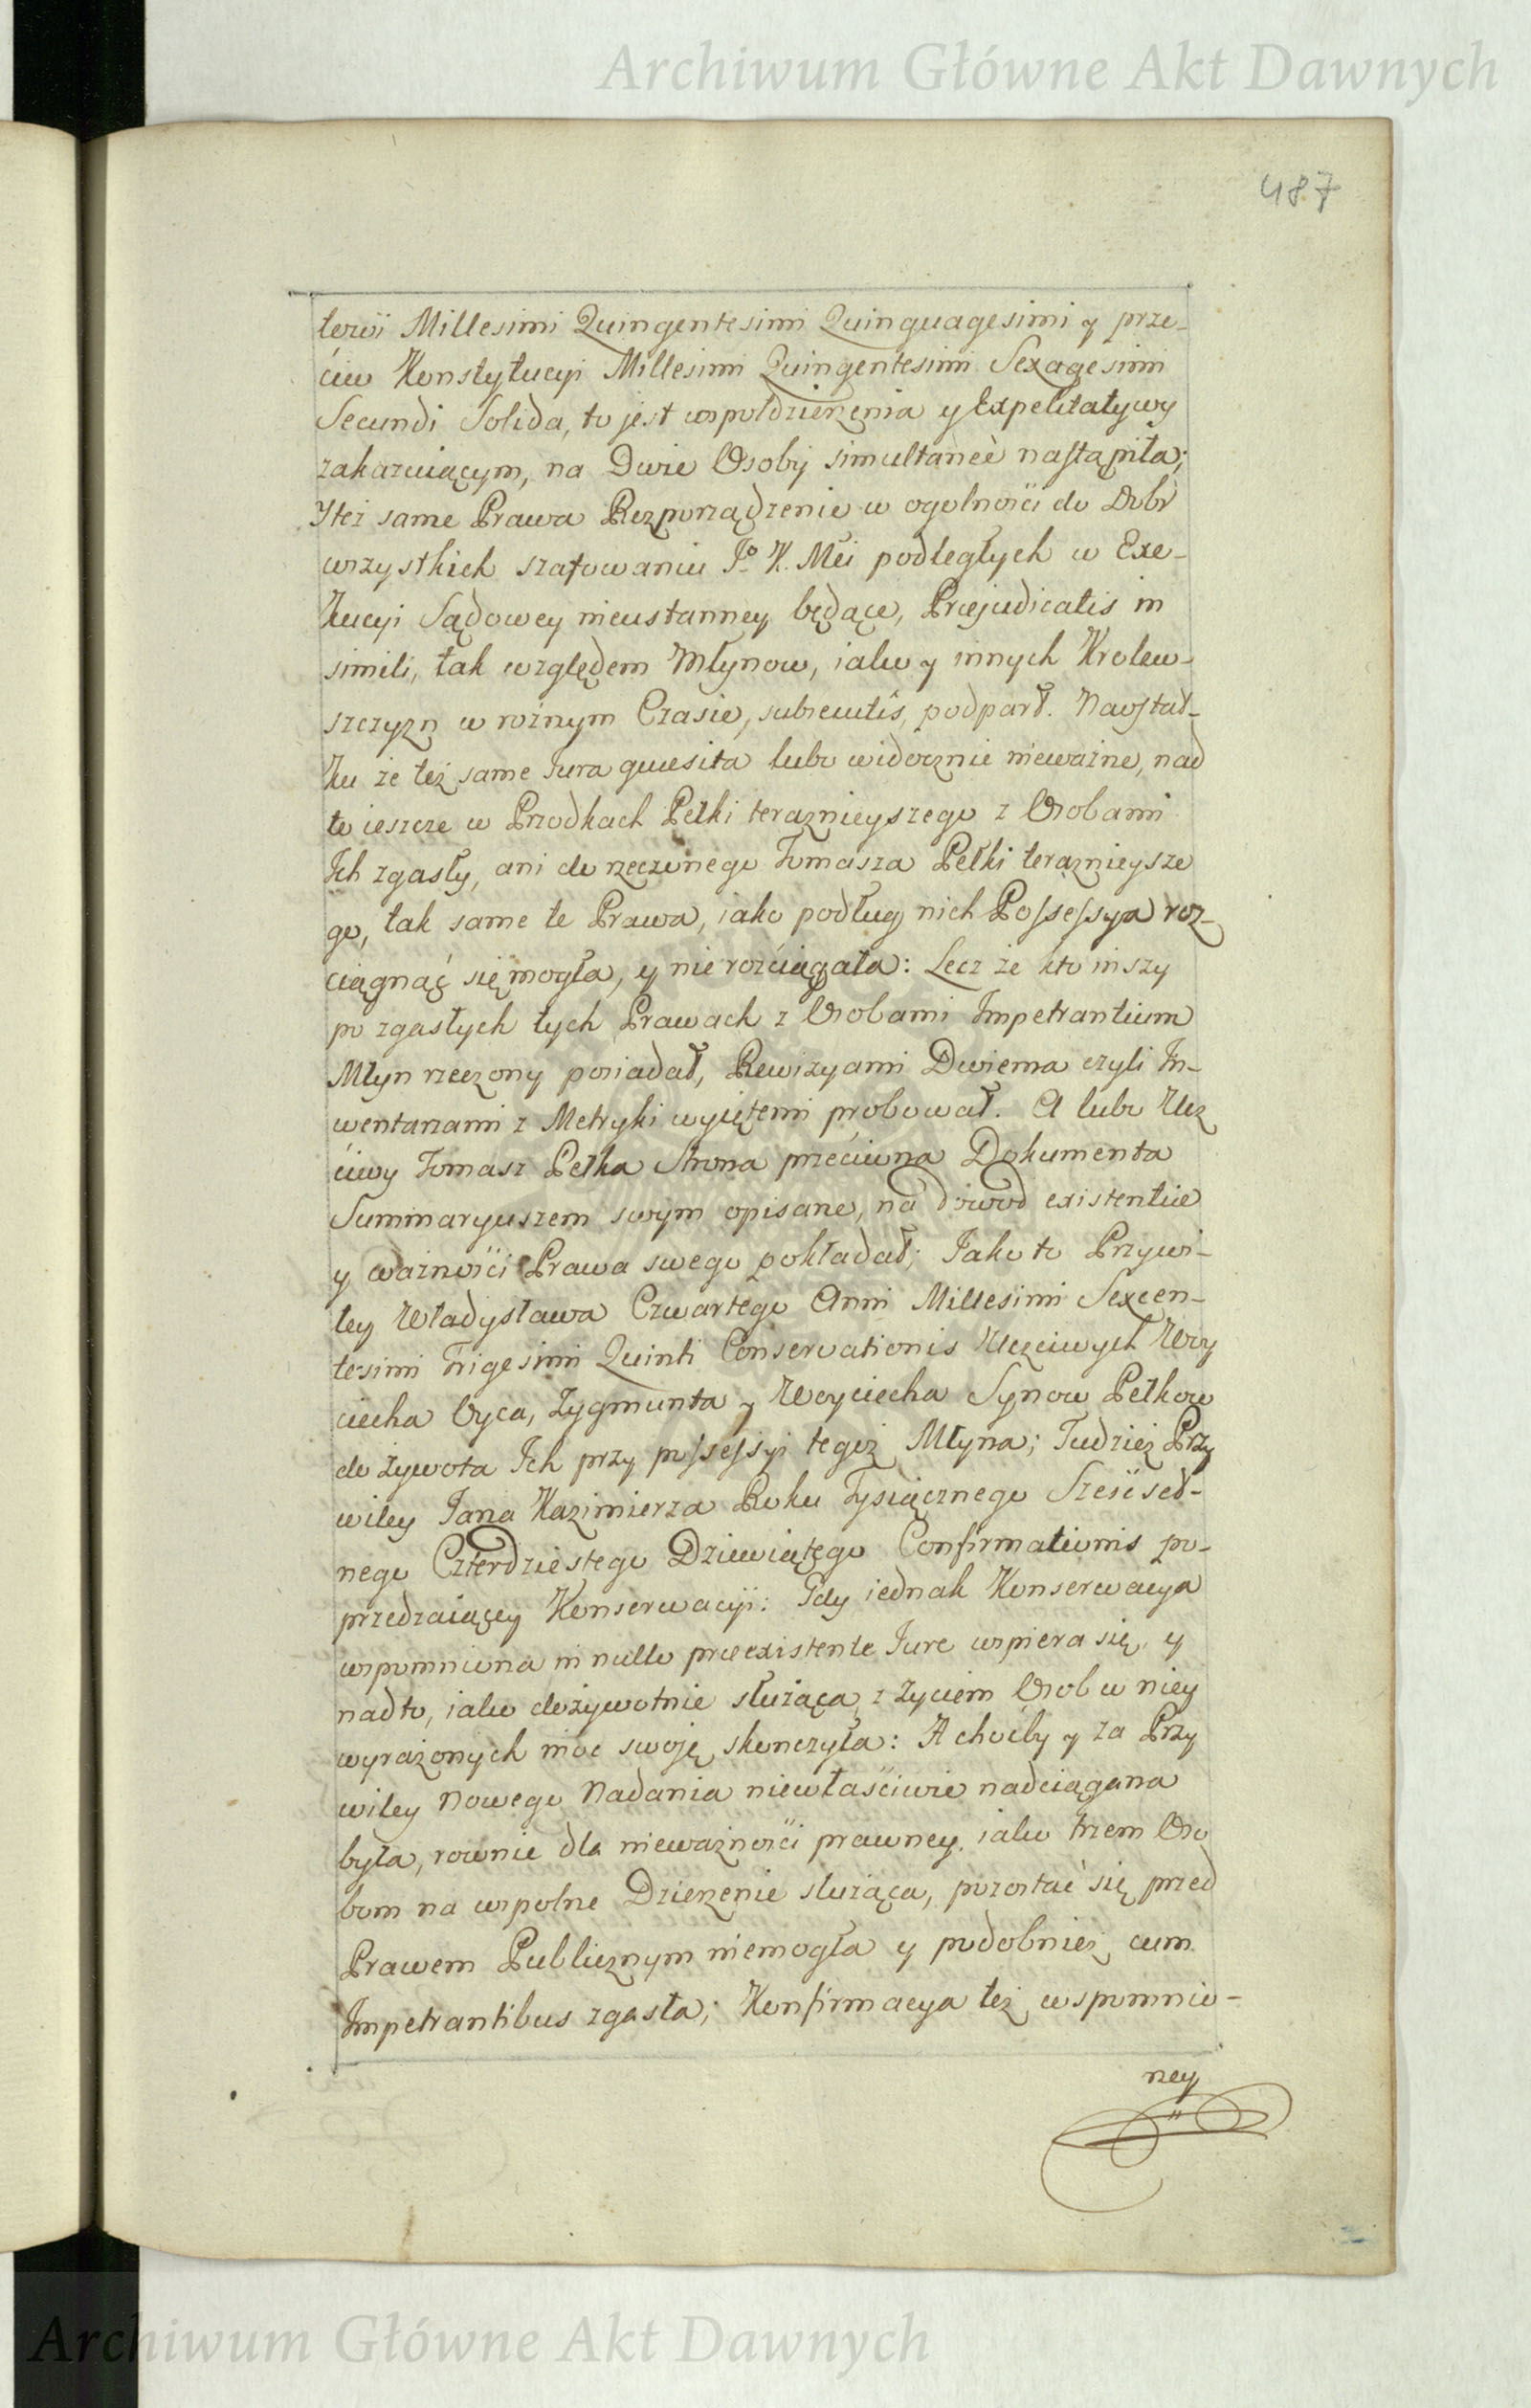 Archiwum Główne Akt Dawnych
487
lowi Millesimi Quingentesimi Quinquagesimi y prze-
ciw Konstytucyi Millesimi Quingentesimi Sexagesimi
Secundi Solida, to jest wspołdzierzenia y Expektatywy
zakazuiącym, na Dwie Osoby simultaneè nastąpiła;
Też same Prawa Rozporządzenie w ogolności do Dobr
wszystkich szafowaniu Jo K. Mci podległych w Exe-
kucyi Sądowey nieustanney będące, Præjudicatis in
simili, tak względem Młynow, iako y innych Krolew-
szczyzn w rożnym Czasie, subsecutis, podparł. Naostat-
ku że też same Jura quæsita lubo widocznie nieważne, nad
to ieszcze w Przodkach Pełki teraznieyszego z Osobami
Ich zgasły, ani do rzeczonego Tomasza Pełki teraznieysze
go, tak same te Prawa, iako podług nich Possessya roz-
ciągnąć się mogła, y nie rozciągała: Lecz że kto inszy
po zgasłych tych Prawach z Osobami Impetrantium
Młyn rzeczony posiadał, Rewizyami Dwiema czyli In-
wentarzami z Metryki wyiętemi probował. A lubo Ucz
ciwy Tomasz Pełka Strona przeciwna Dokumenta
Summaryuszem swym opisane, na dowod existentiæ
y ważności Prawa swego pokładał; Jako to Przywi-
ley Władysława Czwartego Anni Millesimi Sexcen-
tesimi Trigesimi Quinti Conservationis Uczciwych Woy
ciecha Oyca, Zygmunta y Woyciecha Synow Pełkow
do żywota Ich przy possessyi tegoż Młyna; Tudzież Przy
wiley Jana Kazimierza Roku Tysiącznego Sześćset-
nego Czterdziestego Dziewiątego Confirmationis po-
przedzaiącey Konserwacyi: Gdy iednak Konserwacya
wspomniona in nullo præexistente Jure wspiera się, y
nadto, iako dożywotnie służąca, z życiem Osob w niey
wyrażonych moc swoję skończyła: A choćby y za Przy
wiley Nowego Nadania niewłaściwie nadciągana
była, rownie dla nieważności prawney, iako trzem Oso
bom na wspolne Dzierzenie służąca, pozostać się przed
Prawem Publicznym niemogła y podobnież cum
Impetrantibus zgasła; Konfirmacya też wspomnio-
ney
Archiwum Główne Akt Dawnych